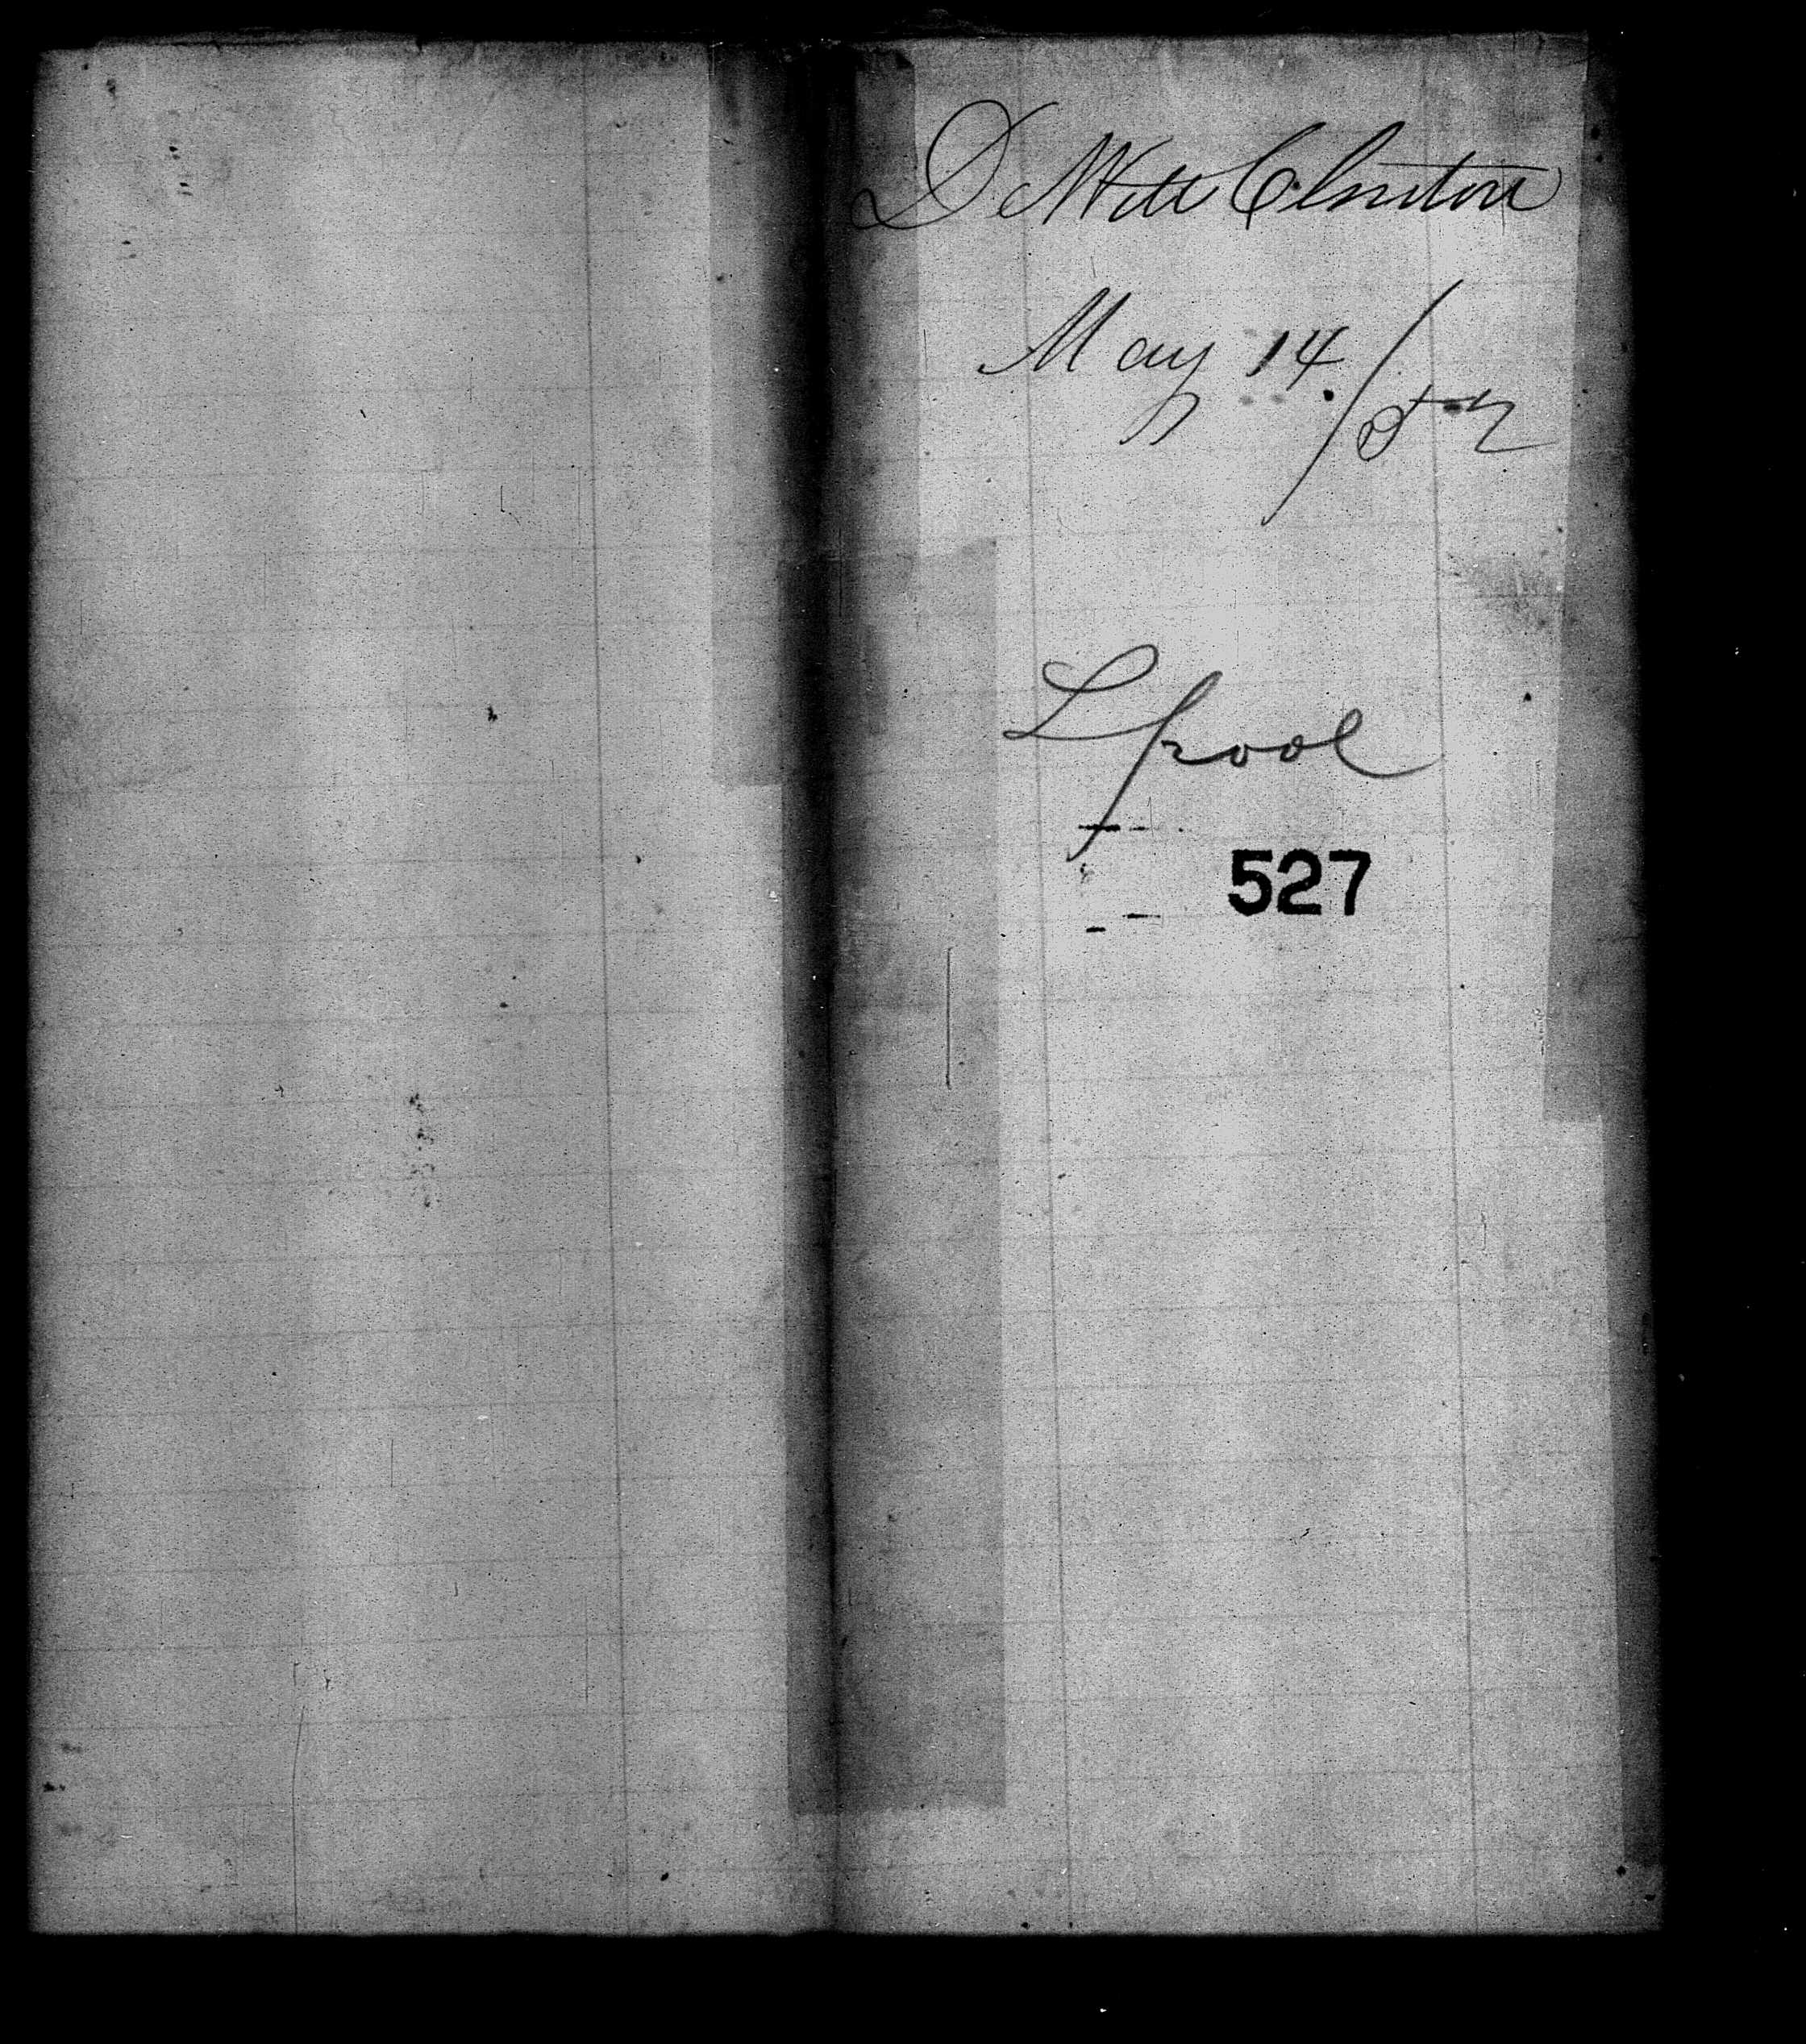 De Witt Clinton
May 14/52
Lpool
527